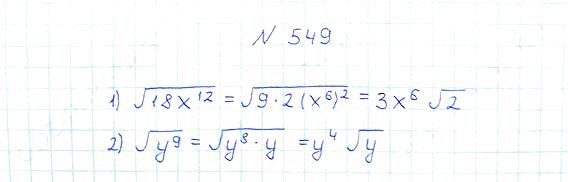 N 549
1) √(18x¹²) = √(9·2(x⁶)²) = 3x⁶ √2
2) √(y⁹) = √(y⁸·y) = y⁴ √y